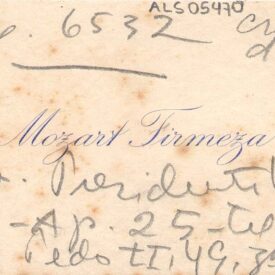 ALS05470
. 6532
Mozart Firmeza
. Presidente
- Ap. 25 - te
Pedo II. 49. 3